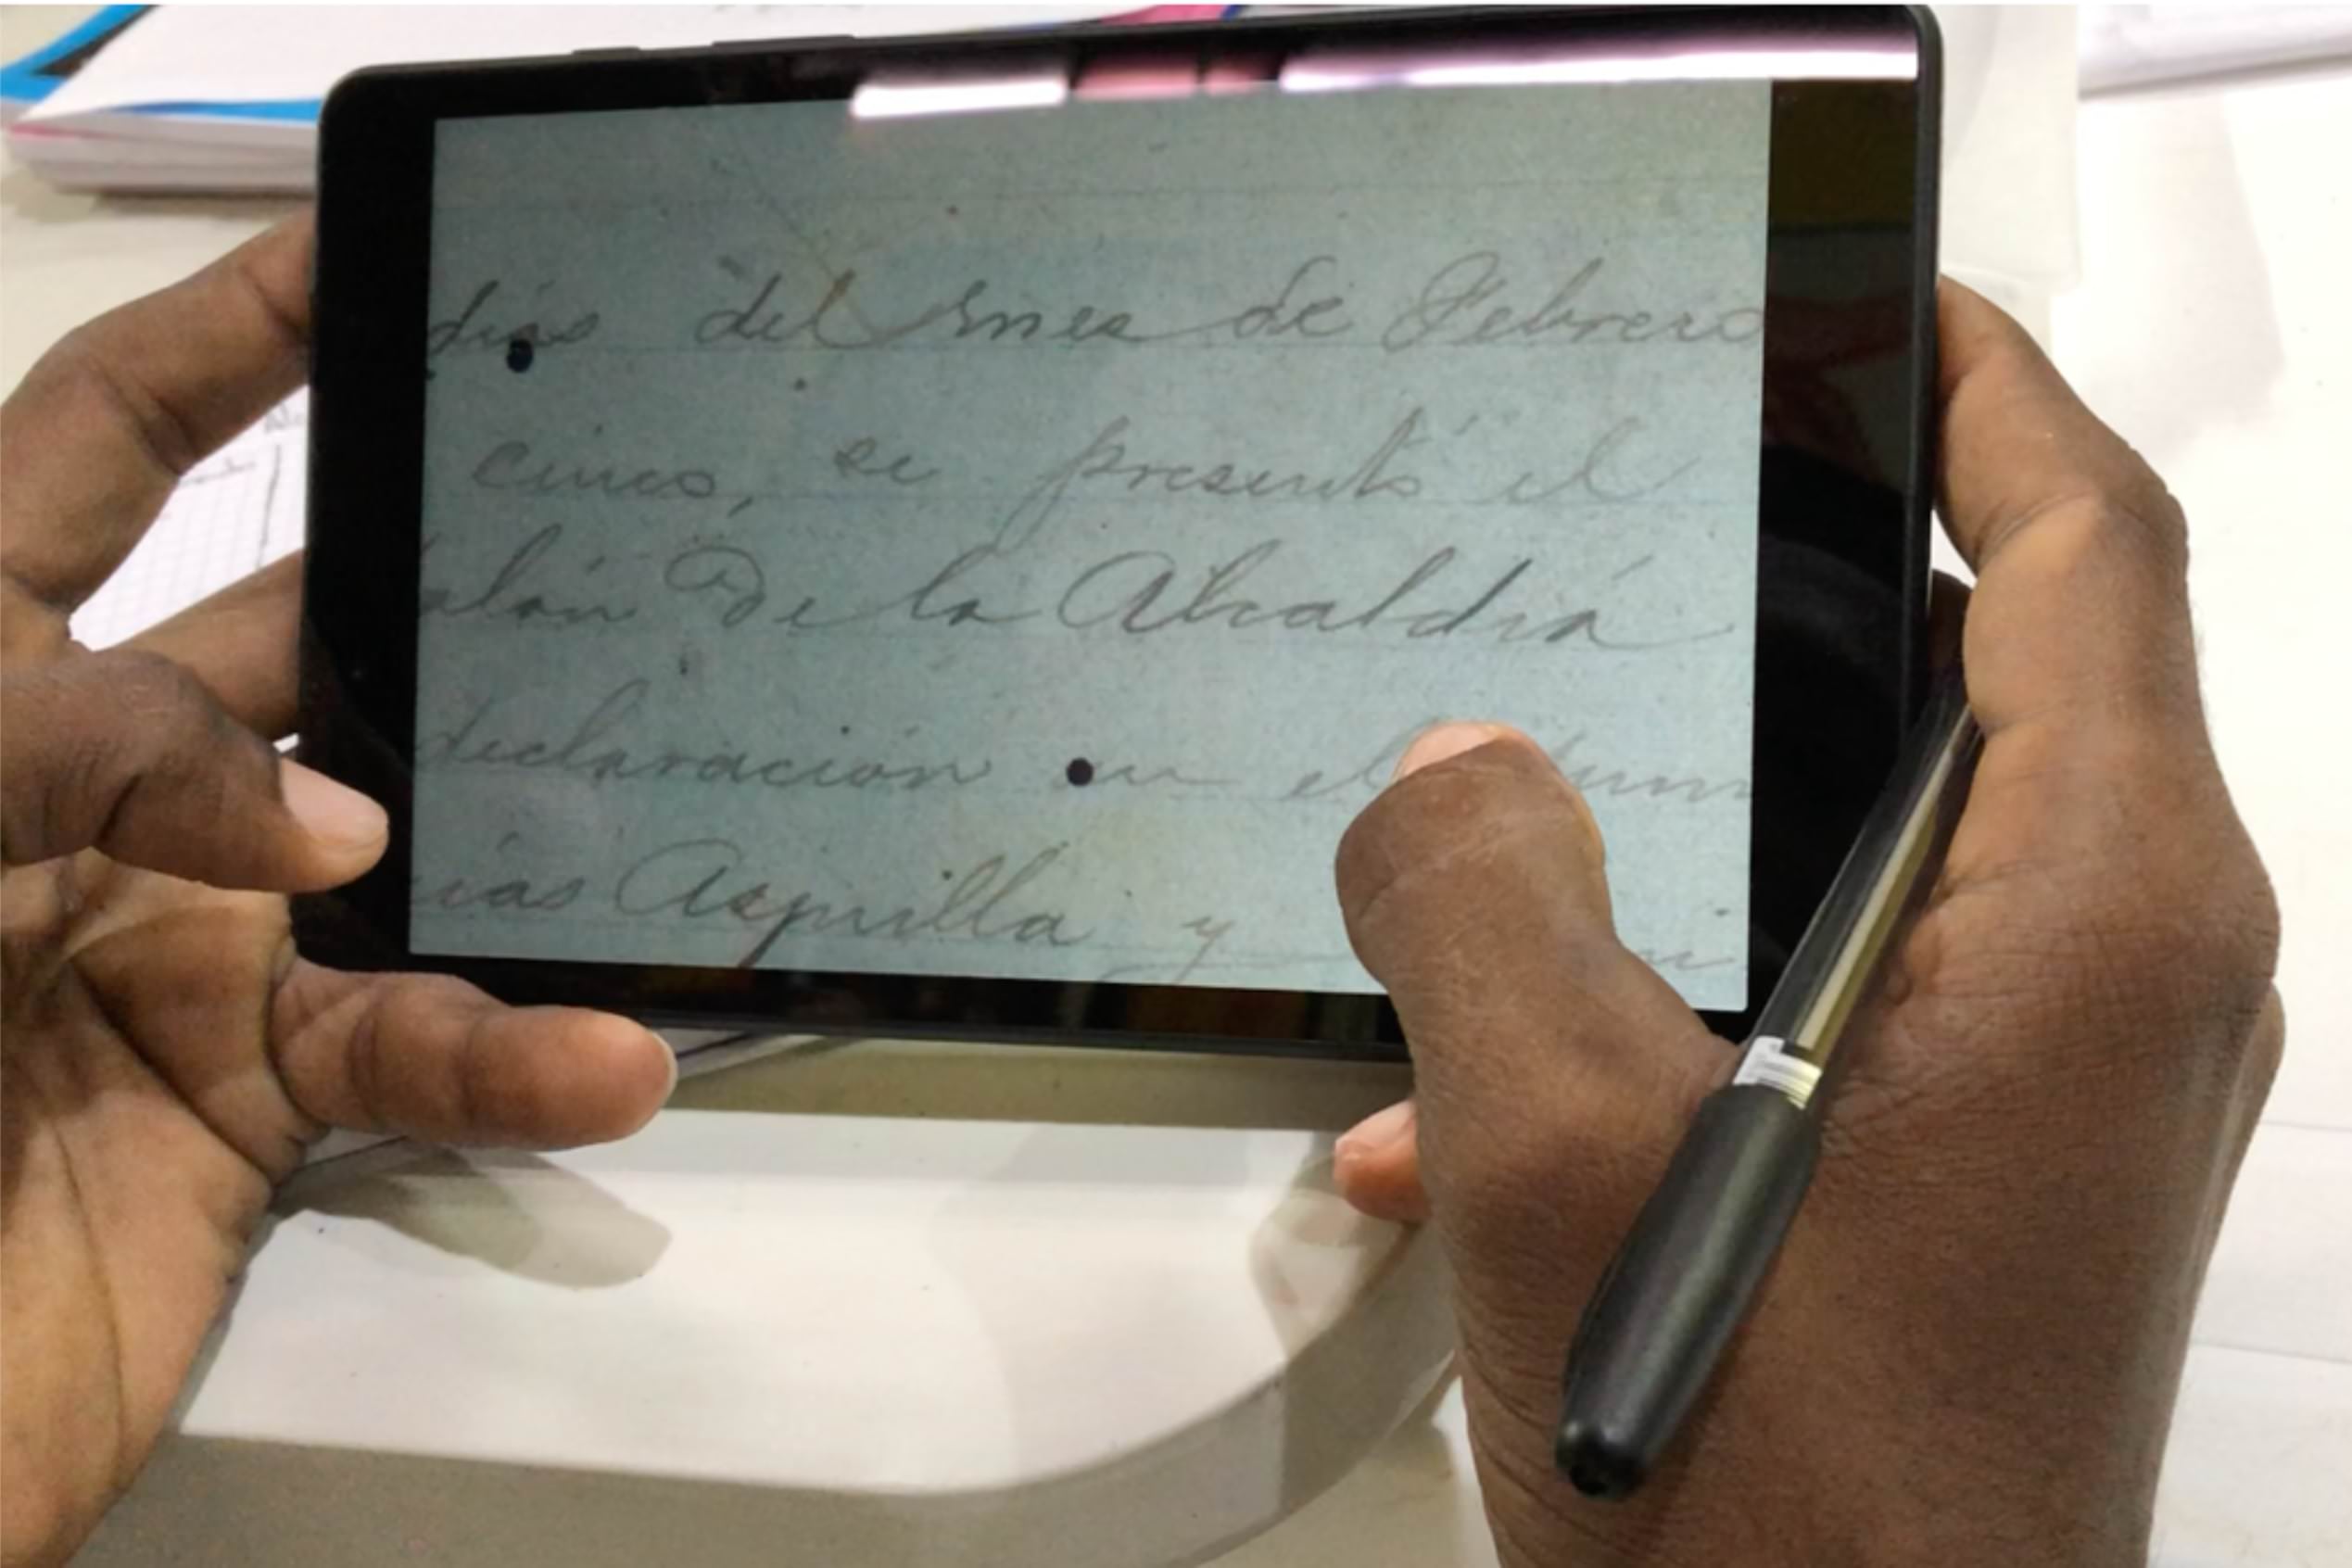 días del mes de Febrero
cinco, se presentó el
alón de la Alcaldía
declaración en el
ías Asprilla y